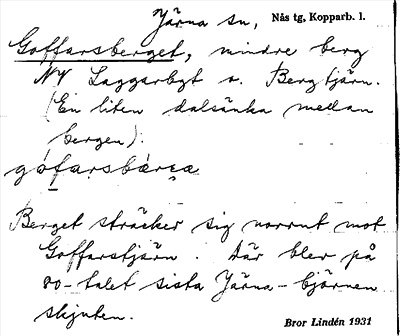 Järna sn, Nås tg, Kopparb. l.
Goffarsberget, mindre berg
NV Laggarbgt o. Bergtjärn.
(En liten dalsänka mellan
bergen).
gófarsbærєa
Berget sträcker sig norrut mot
Goffarstjärn. Där blev på
80-talet sista Järna-björnen
skjuten.
Bror Lindén 1931